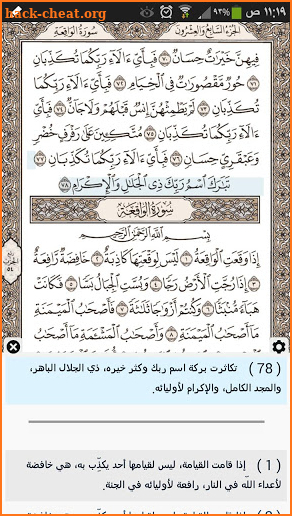 ١١:١٩ ص
الجُزْءُ السَّابِعُ وَالعِشْرُونَ سُورَةُ الوَاقِعَة
فِيهِنَّ خَيْرَٰتٌ حِسَانٌ ٧٠ فَبِأَيِّ ءَالَآءِ رَبِّكُمَا تُكَذِّبَانِ
٧١ حُورٌ مَّقْصُورَٰتٌ فِي ٱلْخِيَامِ ٧٢ فَبِأَيِّ ءَالَآءِ رَبِّكُمَا
تُكَذِّبَانِ ٧٣ لَمْ يَطْمِثْهُنَّ إِنسٌ قَبْلَهُمْ وَلَا جَآنٌّ ٧٤ فَبِأَيِّ
ءَالَآءِ رَبِّكُمَا تُكَذِّبَانِ ٧٥ مُتَّكِـِٔينَ عَلَىٰ رَفْرَفٍ خُضْرٍ
وَعَبْقَرِيٍّ حِسَانٍ ٧٦ فَبِأَيِّ ءَالَآءِ رَبِّكُمَا تُكَذِّبَانِ ٧٧
تَبَٰرَكَ ٱسْمُ رَبِّكَ ذِي ٱلْجَلَٰلِ وَٱلْإِكْرَامِ ٧٨
سُورَةُ الوَاقِعَةِ
بِسْمِ ٱللَّهِ ٱلرَّحْمَٰنِ ٱلرَّحِيمِ
إِذَا وَقَعَتِ ٱلْوَاقِعَةُ ١ لَيْسَ لِوَقْعَتِهَا كَاذِبَةٌ ٢ خَافِضَةٌ رَّافِعَةٌ
٣ إِذَا رُجَّتِ ٱلْأَرْضُ رَجًّا ٤ وَبُسَّتِ ٱلْجِبَالُ بَسًّا ٥ فَكَانَتْ
هَبَآءً مُّنۢبَثًّا ٦ وَكُنتُمْ أَزْوَٰجًا ثَلَٰثَةً ٧ فَأَصْحَٰبُ ٱلْمَيْمَنَةِ
مَآ أَصْحَٰبُ ٱلْمَيْمَنَةِ ٨ وَأَصْحَٰبُ ٱلْمَشْـَٔمَةِ مَآ أَصْحَٰبُ
٥٤
( 78 ) تكاثرت بركة اسم ربك وكثر خيره، ذي الجلال الباهر،
والمجد الكامل، والإكرام لأوليائه.
( 1 ) إذا قامت القيامة، ليس لقيامها أحد يكذِّب به، هي خافضة
لأعداء اللّه في النار، رافعة لأوليائه في الجنة.
hack-cheat.org